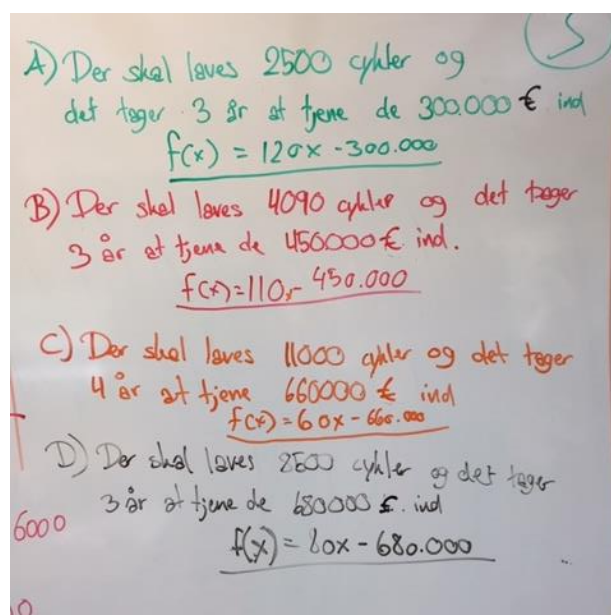 5
A) Der skal laves 2500 cykler og
det tager 3 år at tjene de 300.000 € ind
f(x) = 120x - 300.000
B) Der skal laves 4090 cykler og det tager
3 år at tjene de 450000 € ind.
f(x)=110,- 450.000
C) Der skal laves 11000 cykler og det tager
4 år at tjene 660000 € ind
f(x)=60x-660.000
D) Der skal laves 2500 cykler og det tager
3 år at tjene de 680000 €. ind
6000
f(x) = 80x - 680.000